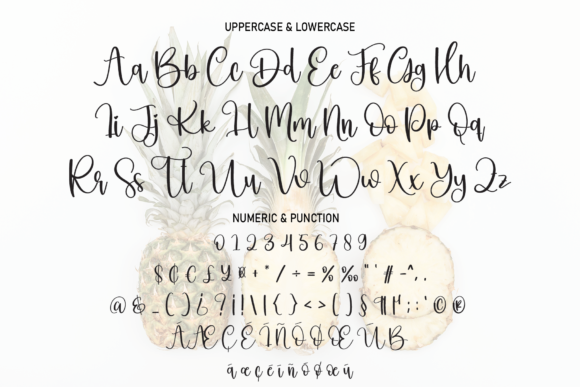 UPPERCASE & LOWERCASE
Aa Bb Cc Dd Ee Ff Gg Hh
Ii Jj Kk Ll Mm Nn Oo Pp Qq
Rr Ss Tt Uu Vv Ww Xx Yy Zz
NUMERIC & PUNCTION
0 1 2 3 4 5 6 7 8 9
$ ₵ € £ ¥ + " / ÷ = % ‰ " ' # - ^ , .
@ & _ ( ) ¿ ? ¡ ! \ | { } < > ( ) § ¶ ; : ' © ®
Æ Ç Ñ Œ
æ ç ñ œ